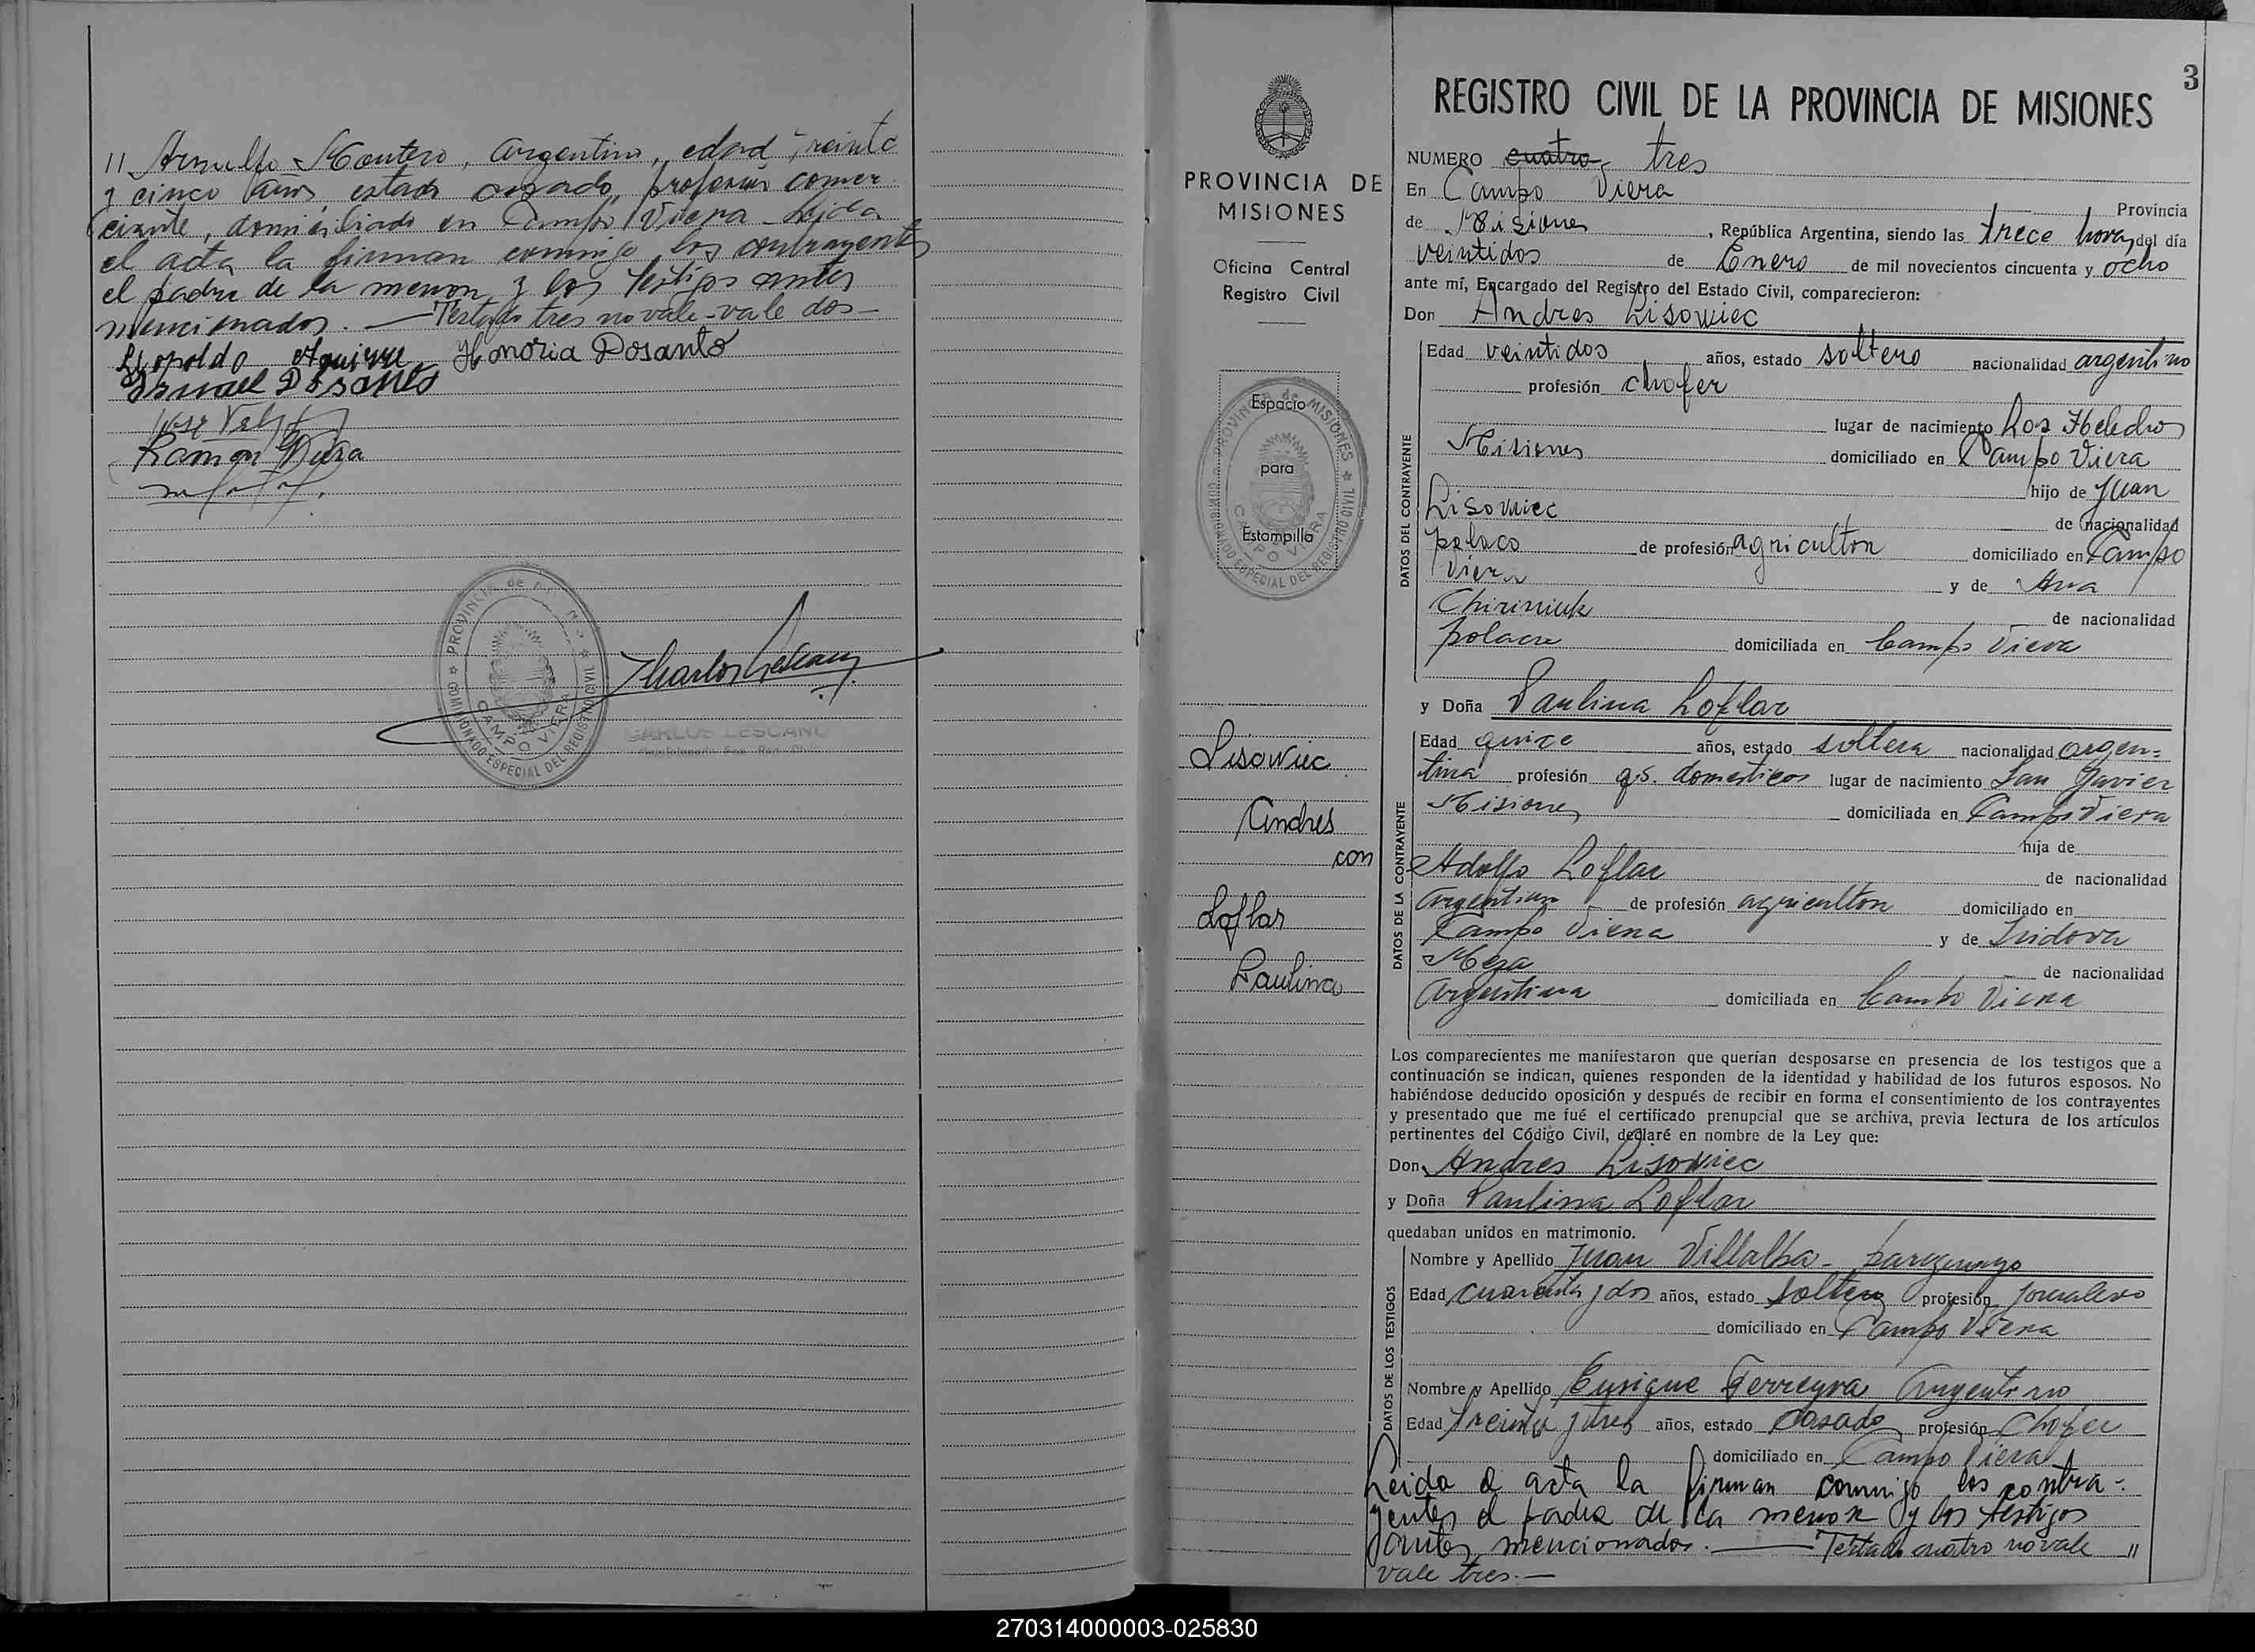 11 Arnulfo Montero, Argentino, edad treinta
y cinco años, estado casado, profesión comer
ciante, domiciliado en Campo Viera - Leida
el acta la firman conmigo los contrayentes
el padre de la menor y los testigos antes
mencionados. — Testado tres no vale - vale dos —
Leopoldo Aguirre Honoria Dosanto
Ismael Dosanto
Jose
Ramon
PROVINCIA de
COMISIONADO ESPECIAL DEL REGISTRO CIVIL
CAMPO VIERA
CARLOS LESCANO
PROVINCIA DE
MISIONES
Oficina Central
Registro Civil
PROVINCIA de MISIONES
COMISIONADO ESPECIAL DEL REGISTRO CIVIL
CAMPO VIERA
Espacio
para
Estampilla
Lisowiec
Andres
con
Loflar
Paulina
3
REGISTRO CIVIL DE LA PROVINCIA DE MISIONES
NUMERO cuatro - tres
En Campo Viera
Provincia
de Misiones, República Argentina, siendo las trece horas del día
veintidos de Enero de mil novecientos cincuenta y ocho
ante mí, Encargado del Registro del Estado Civil, comparecieron:
Don Andres Lisowiec
DATOS DEL CONTRAYENTE
Edad veintidos años, estado soltero nacionalidad argentino
profesión chofer
lugar de nacimiento Los Heledros
Misiones domiciliado en Campo Viera
hijo de Juan
Lisowiec
de nacionalidad
polaco de profesión agricultor domiciliado en Campo
Viera y de Ana
Chiriniuk de nacionalidad
polaca domiciliada en Campo Viera
y Doña Paulina Loflar
DATOS DE LA CONTRAYENTE
Edad quice años, estado soltera nacionalidad argen=
tina profesión qs. domesticos lugar de nacimiento San Javier
Misiones domiciliada en Campo Viera
hija de
Adolfo Loflar de nacionalidad
Argentino de profesión agricultor domiciliado en
Campo Viera y de Isidora
Meza de nacionalidad
Argentina domiciliada en Campo Viera
Los comparecientes me manifestaron que querían desposarse en presencia de los testigos que a
continuación se indican, quienes responden de la identidad y habilidad de los futuros esposos. No
habiéndose deducido oposición y después de recibir en forma el consentimiento de los contrayentes
y presentado que me fué el certificado prenupcial que se archiva, previa lectura de los artículos
pertinentes del Código Civil, declaré en nombre de la Ley que:
Don Andres Lisowiec
y Doña Paulina Loflar
quedaban unidos en matrimonio.
DATOS DE LOS TESTIGOS
Nombre y Apellido Juan Villalba - paraguayo
Edad cuarenta y dos años, estado soltero profesión jornalero
domiciliado en Campo Viera
Nombre y Apellido Enrique Ferreyra Argentino
Edad treinta y tres años, estado casado profesión Chofer
domiciliado en Campo Viera
Leida el acta la firman conmigo los contra-
yentes el padre de la menor y los testigos
antes mencionados. — Testado cuatro no vale "
vale tres. —
270314000003-025830